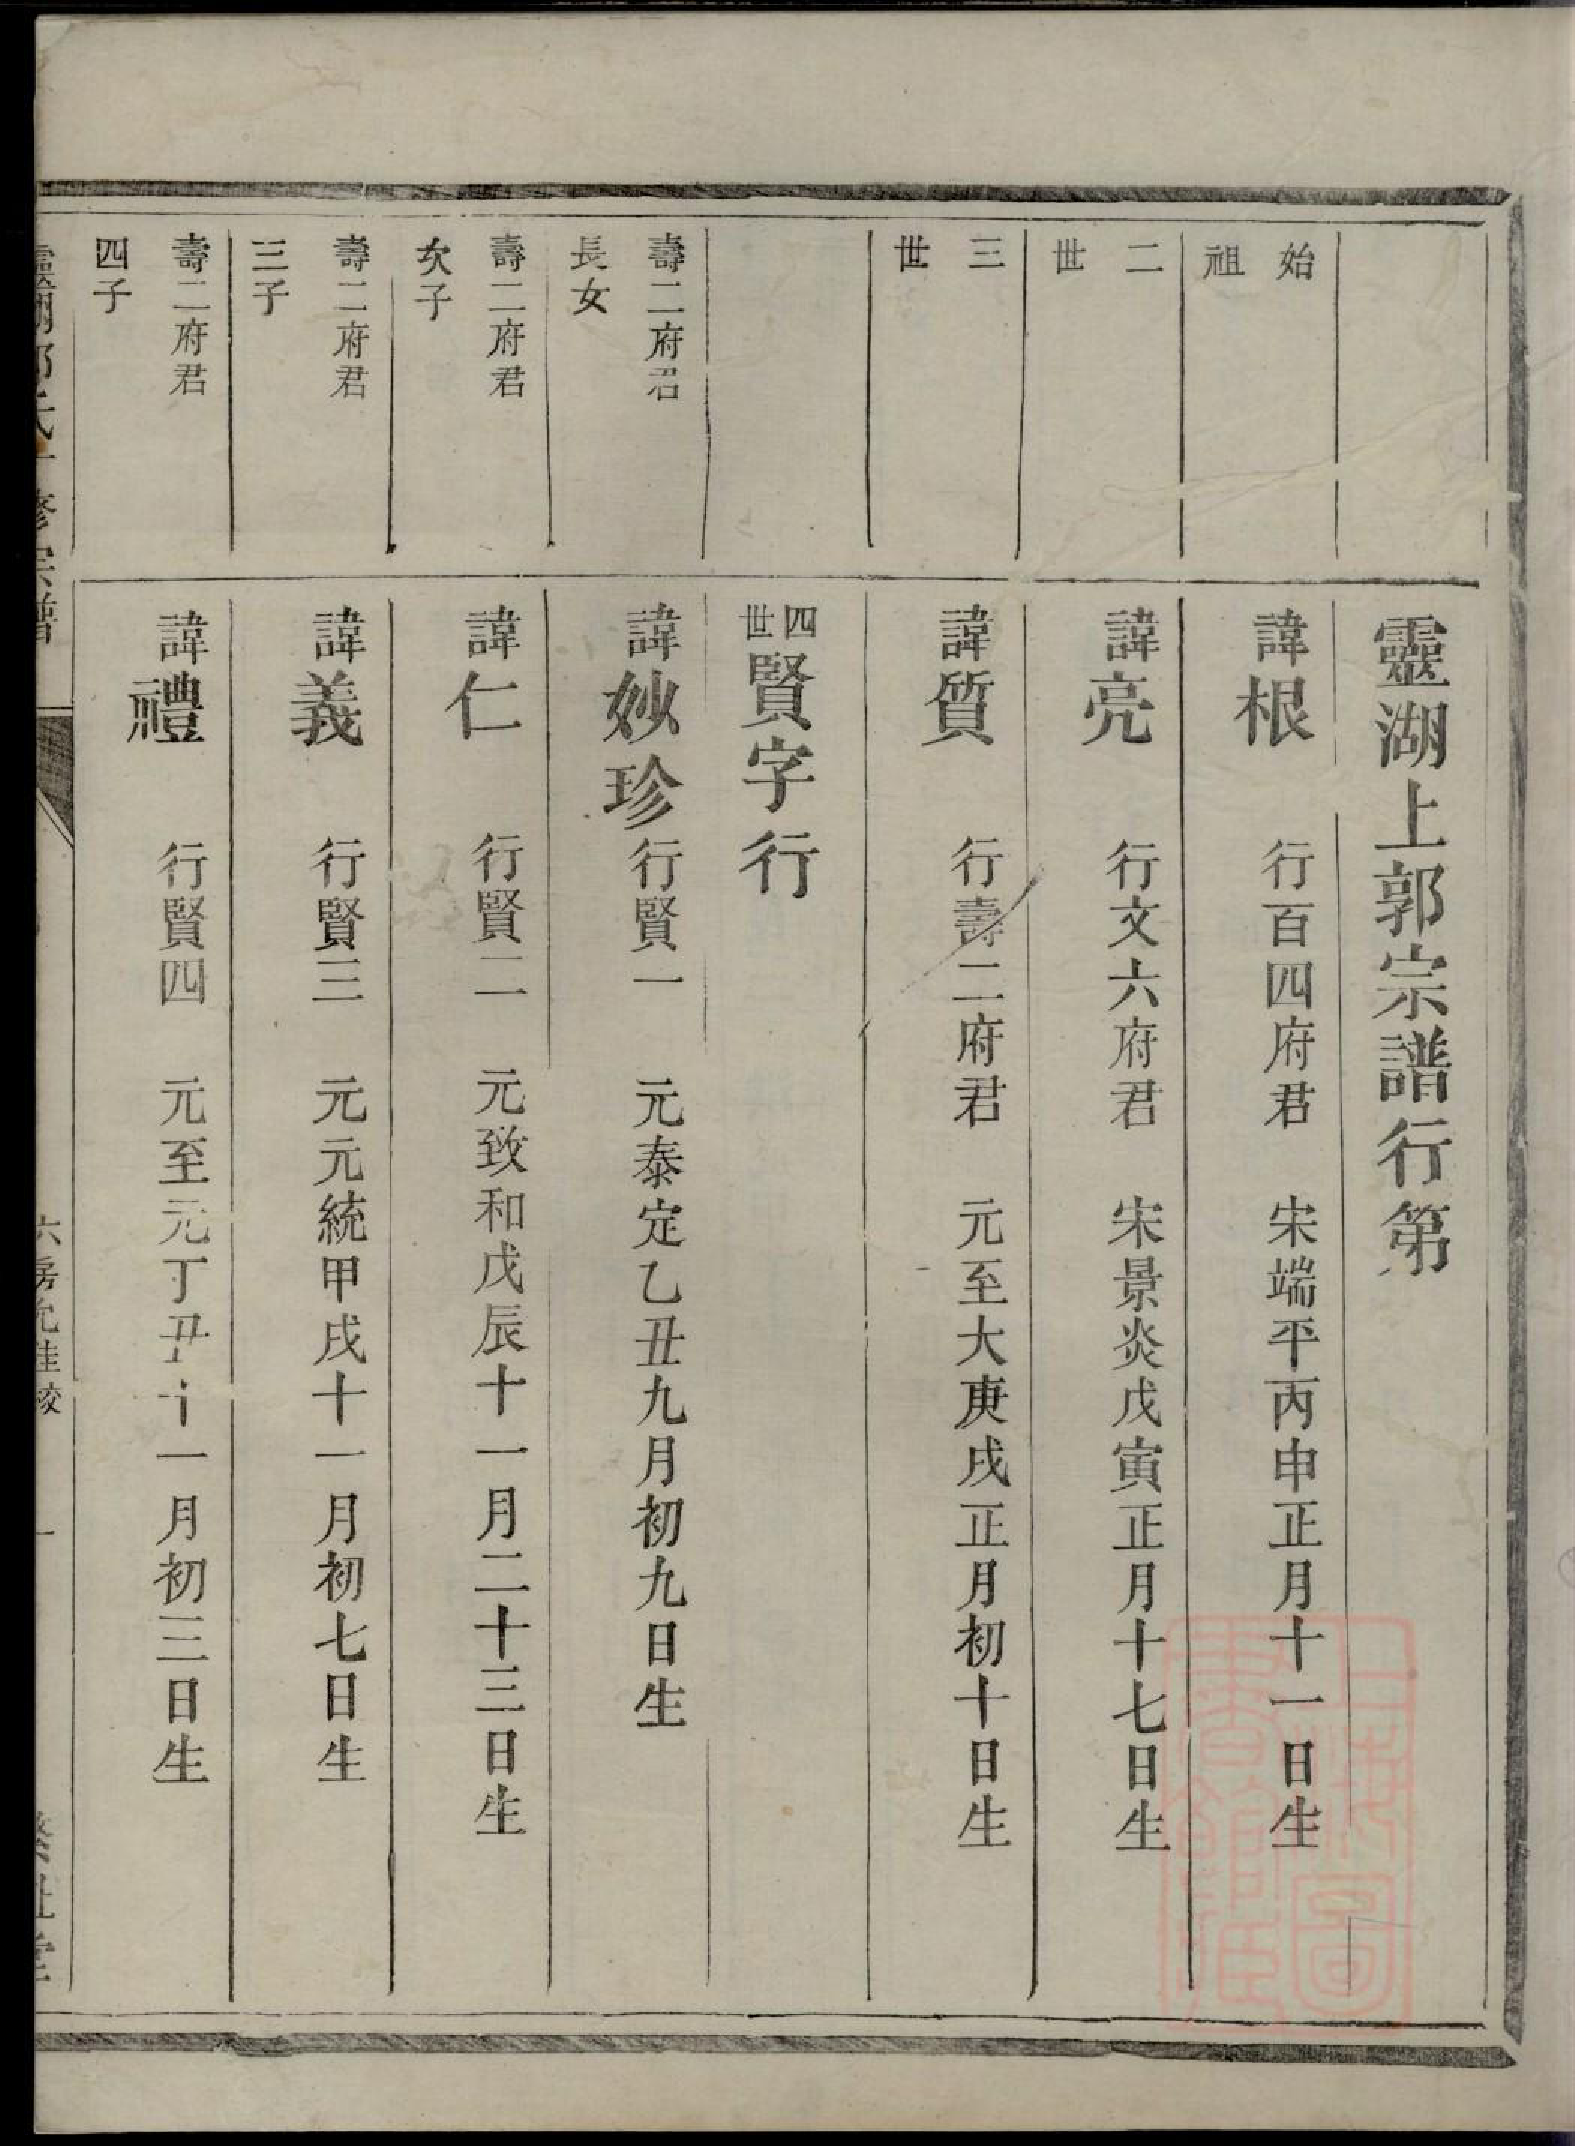 靈湖上郭宗譜行第
始祖
諱根 行百四府君 宋端平丙申正月十一日生
二世
諱亮 行文六府君 宋景炎戊寅正月十七日生
三世
諱質 行壽二府君 元至大庚戌正月初十日生
四世賢字行
壽二府君
長女
諱妙珍行賢一 元泰定乙丑九月初九日生
壽二府君
次子
諱仁 行賢二 元致和戊辰十一月二十三日生
壽二府君
三子
諱義 行賢三 元元統甲戌十一月初七日生
壽二府君
四子
諱禮 行賢四 元至元丁丑十一月初三日生
修宗譜
六房
一
上海圖書館藏